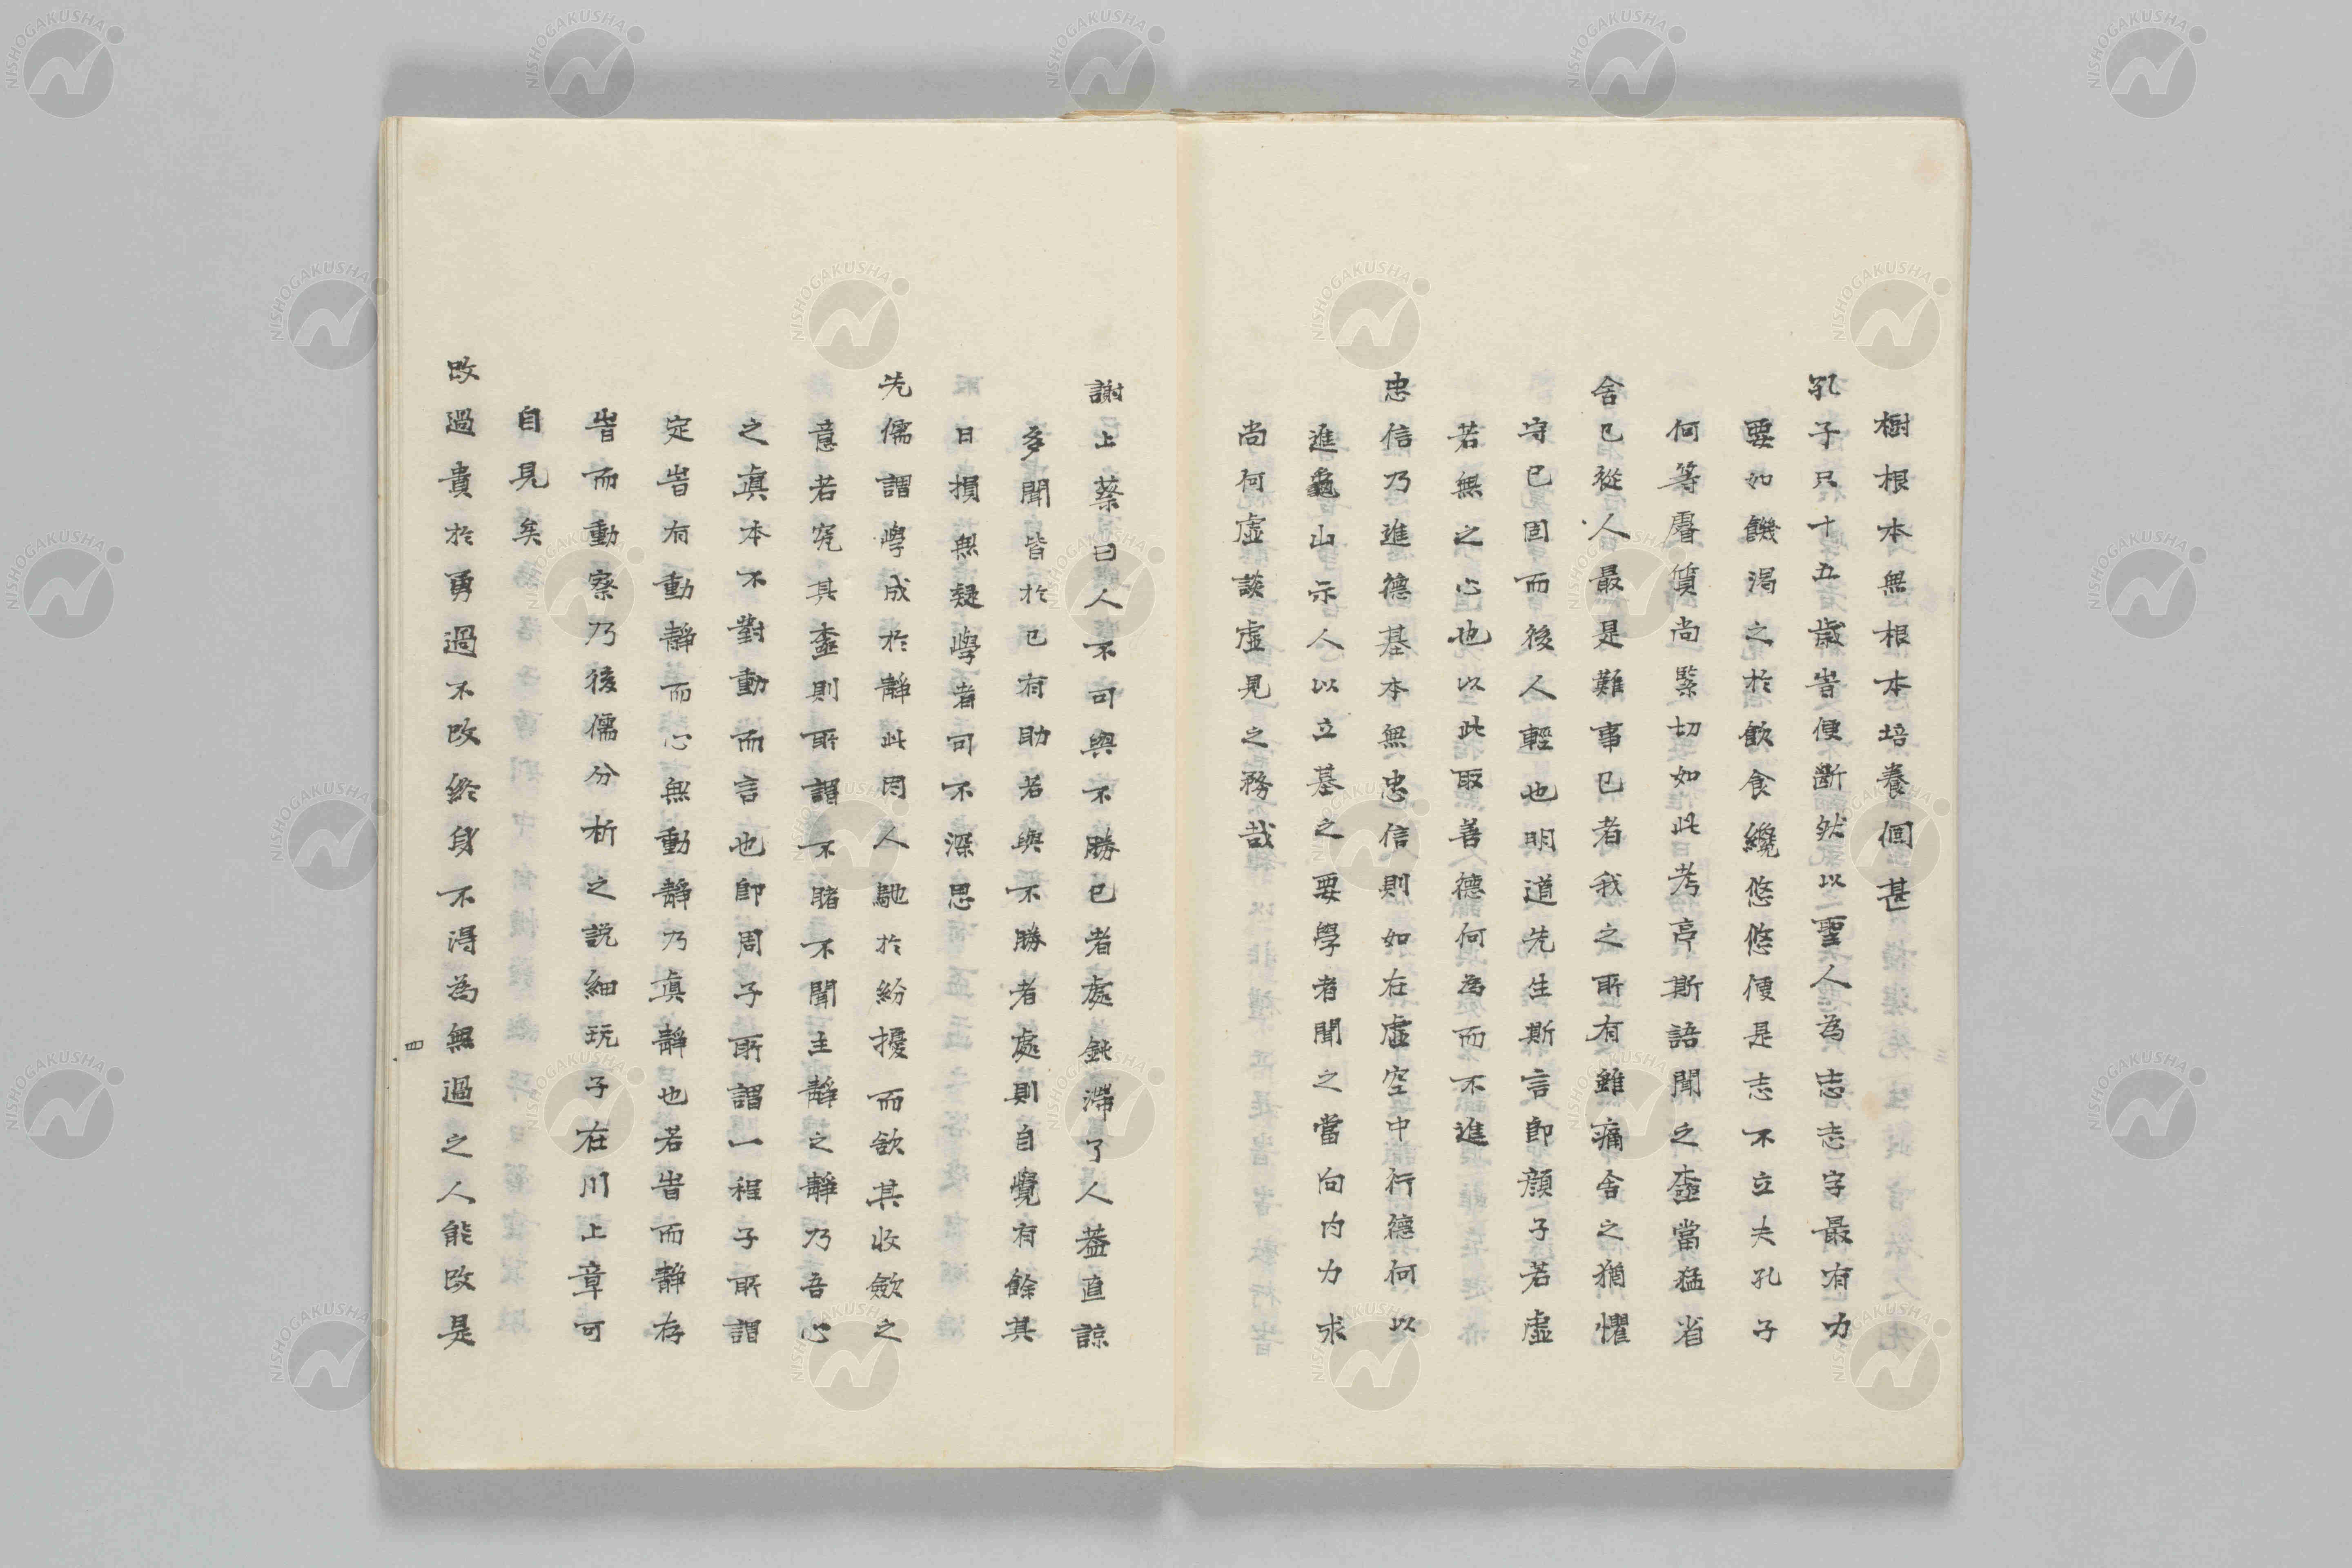 樹根本無根本培養個甚
孔子只十五歲旹便斷然以聖人為志志字最有力
要如饑渴之於飲食纔悠悠便是志不立夫孔子
何等脣質尚緊切如此考亭斯語聞之盍當猛省
舍己從人最是難事己者我之所有雖痛舍之猶懼
守己固而後人輕也明道先生斯言即顏子若虛
若無之心也以此取善德何為而不進
忠信乃進德基本無忠信則如在虛空中行德何以
進龜山示人以立基之要學者聞之當向內力求
尚何虛談虛見之務哉
謝上蔡曰人不可與不勝己者處鈍滯了人葢直諒
多聞皆於己有助若與不勝者處則自覺有餘其
日損無疑學者可不深思
先儒謂學成於靜此因人馳於紛擾而欲其收斂之
意若究其盍則所謂不睹不聞主靜之靜乃吾心
之真本不對動而言也即周子所謂一程子所謂
定旹有動靜而心無動靜乃真靜也若旹而靜存
旹而動察乃後儒分析之說細玩子在川上章可
自見矣
改過貴於勇過不改終身不得為無過之人能改是
四
NISHOGAKUSHA